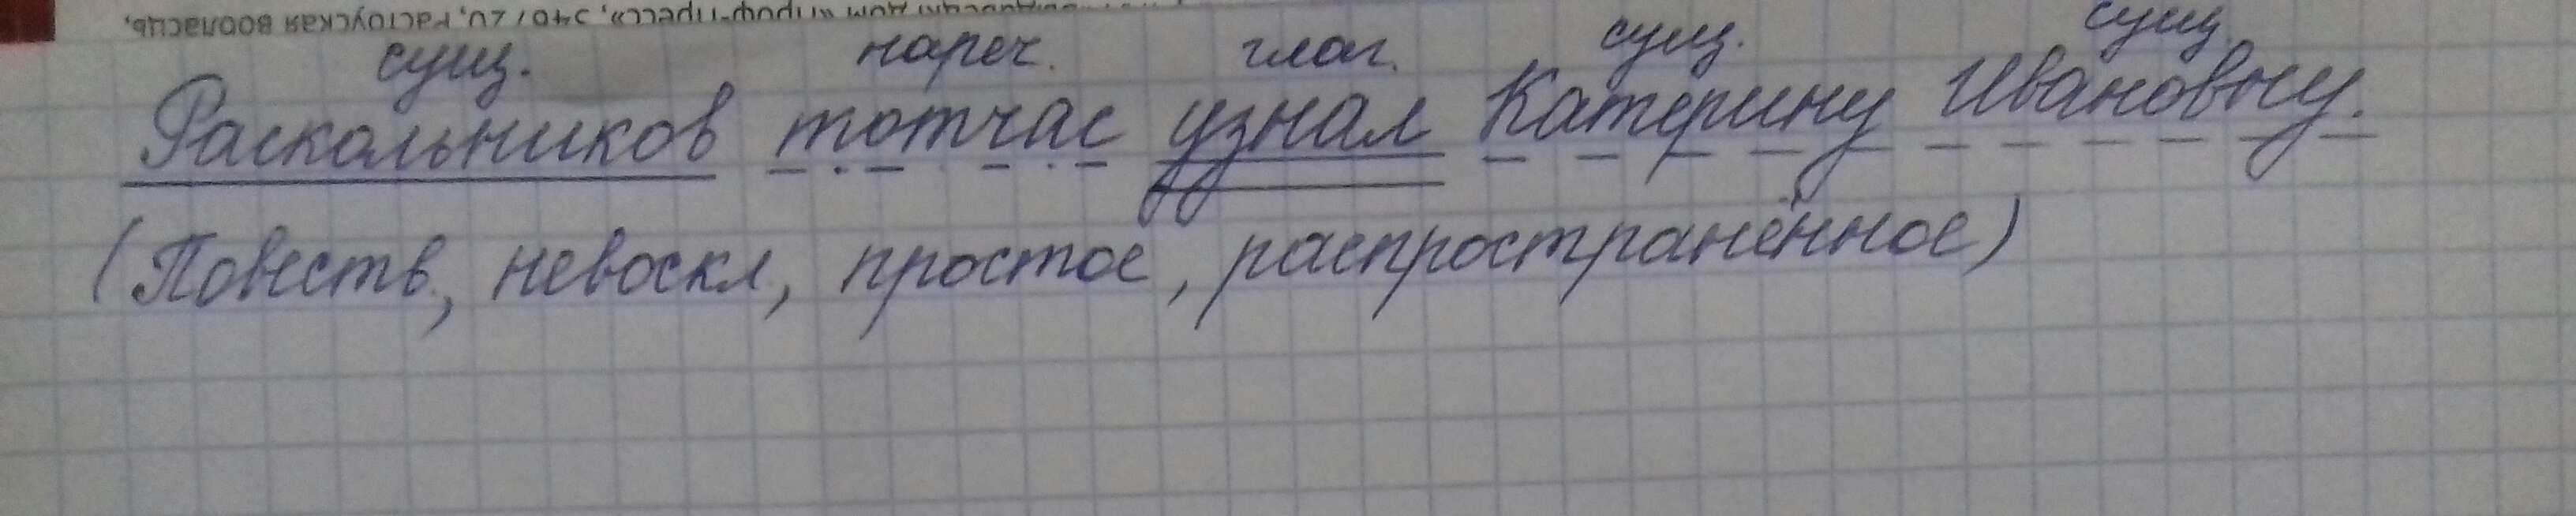 сущ. нареч. глаг. сущ. сущ.
Раскольников тотчас узнал Катерину Ивановну.
(Повеств., невоскл, простое, распространённое)